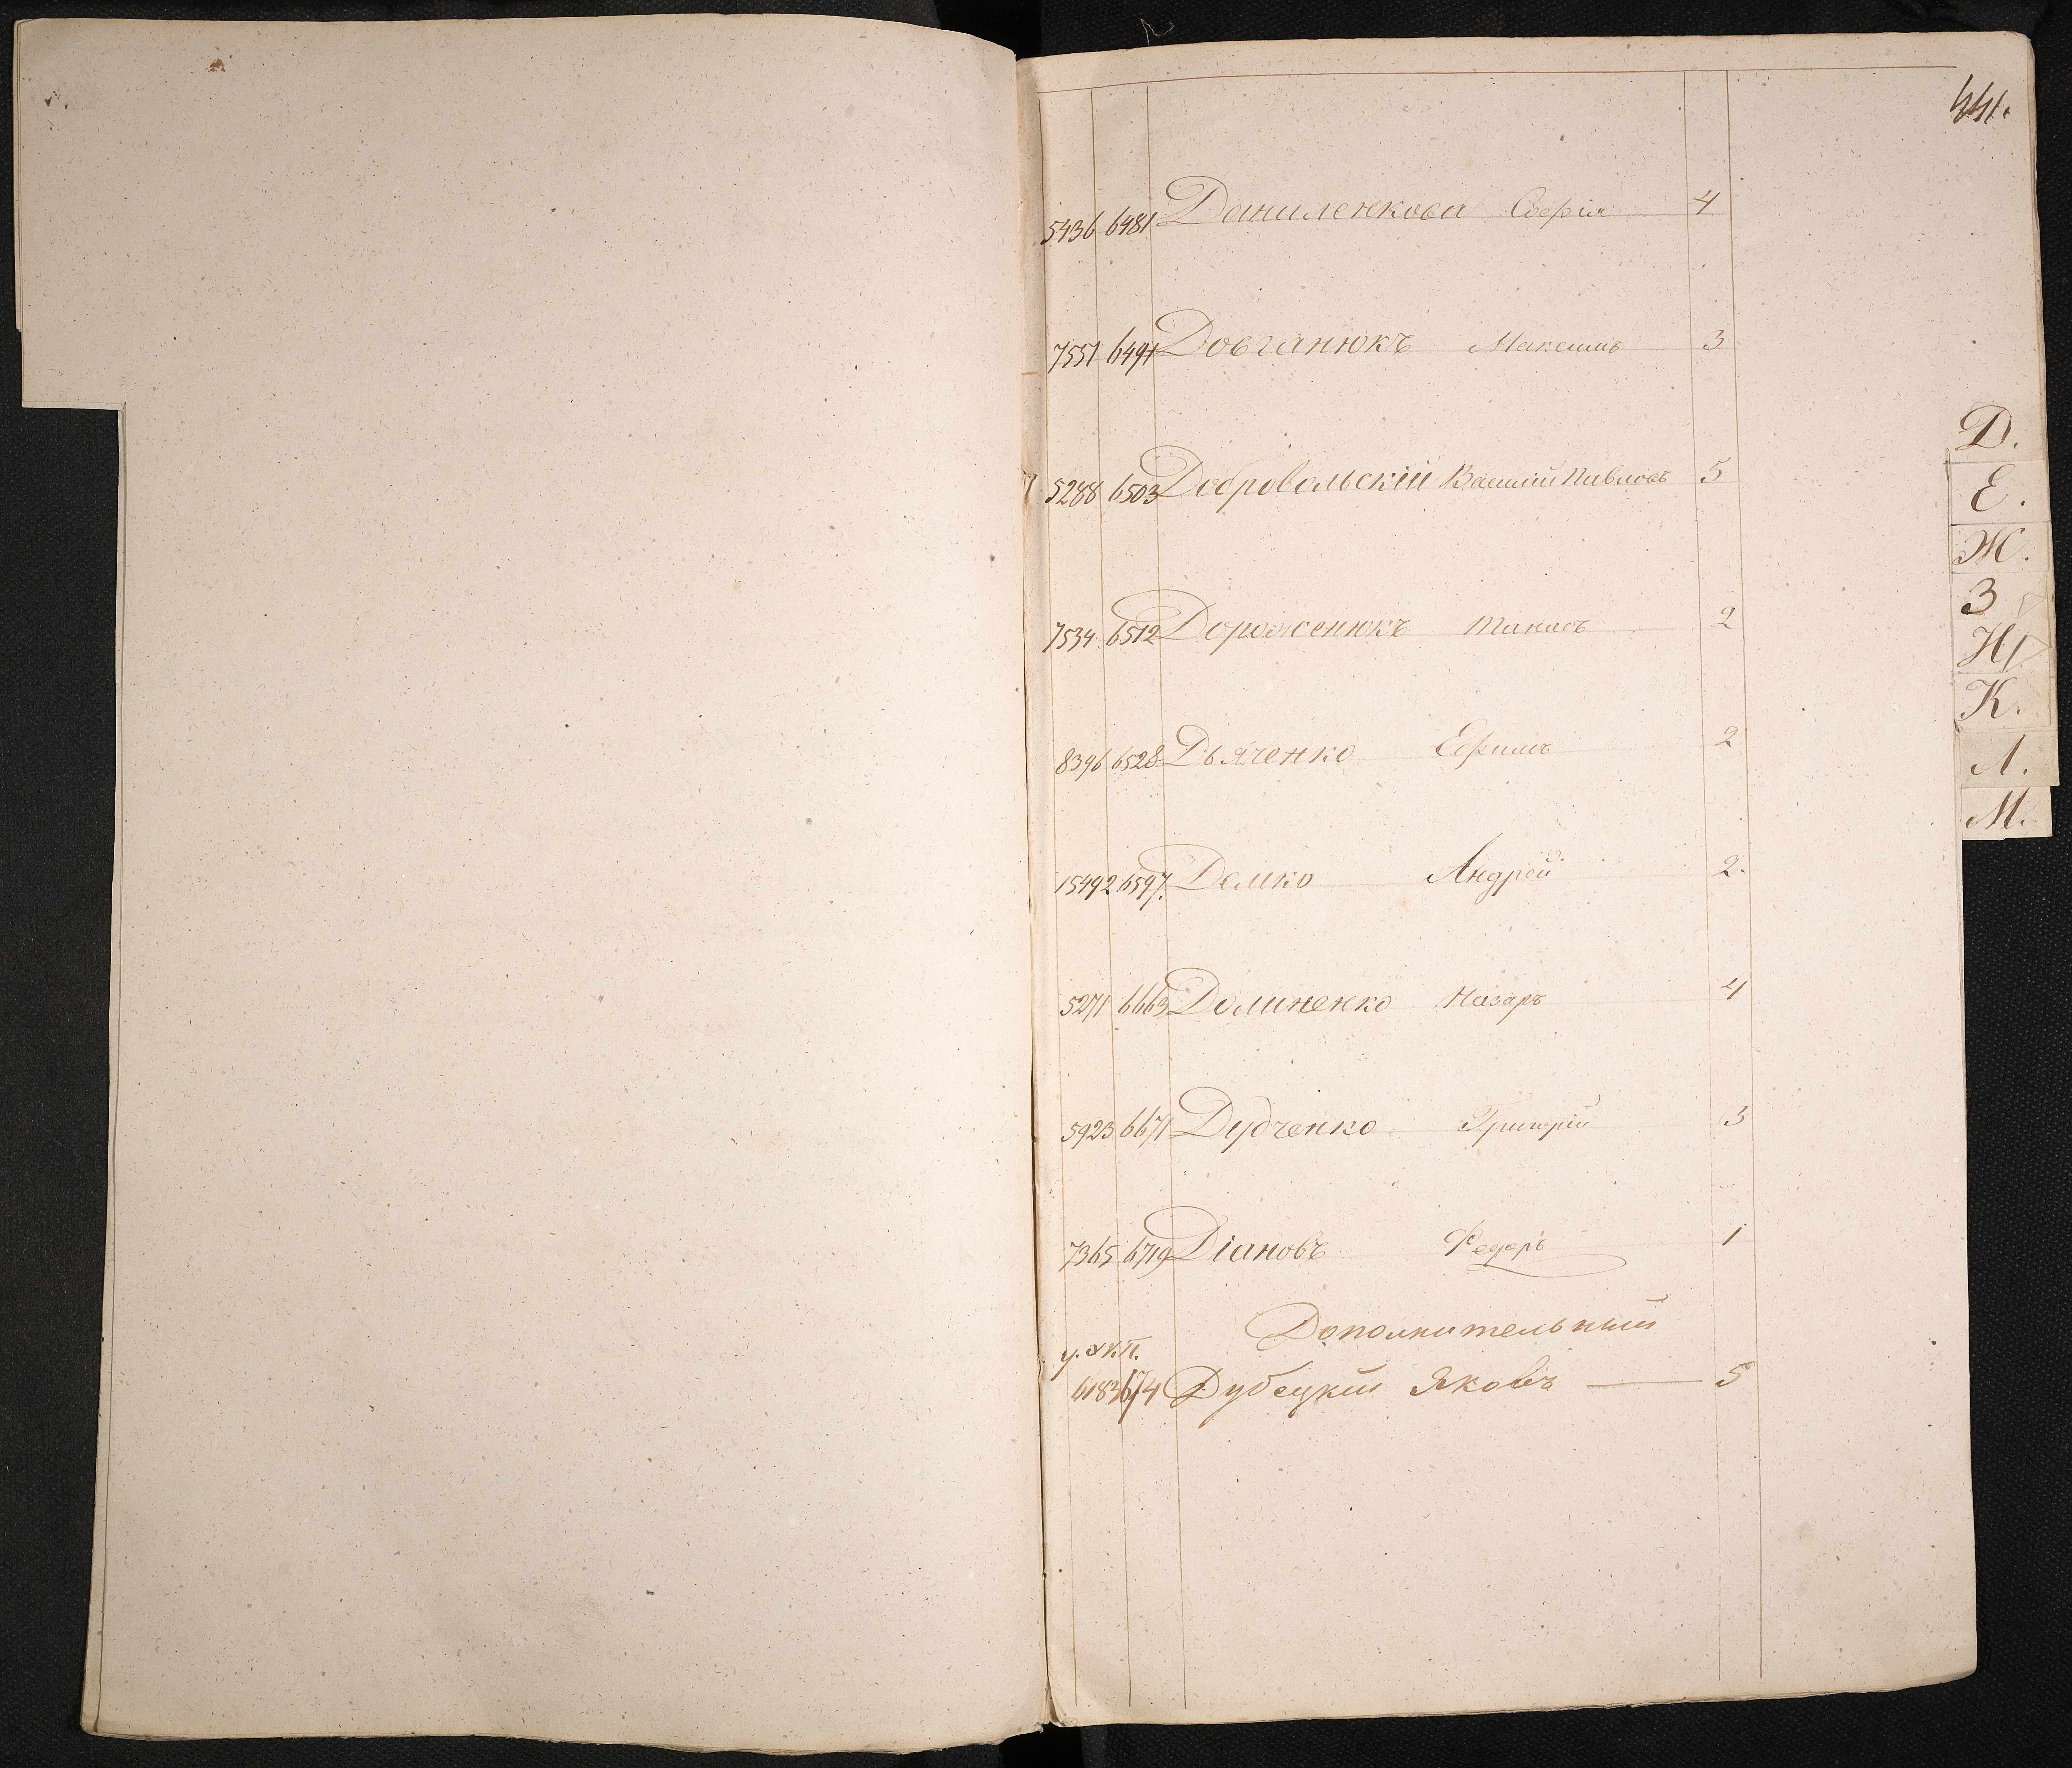 441.
5436 6481 Даниленкова Софія 4
7551 6491 Довганюкъ Максимъ 3
5288 6503 Добровольскій Василій Павловъ 5
7534 6512 Дороженюкъ Танасъ 2
8396 6528 Дьяченко Ефимъ 2
15492 6597. Демко Андрей 2.
5271 6663 Долиненко Назаръ 4
5923 6671 Дудченко Григорій 3
7365 6719 Діановъ Федоръ 1
Дополнительный
Дубецкій Яковъ 5
Д.
Е.
Ж.
З
И
К.
Л.
М.